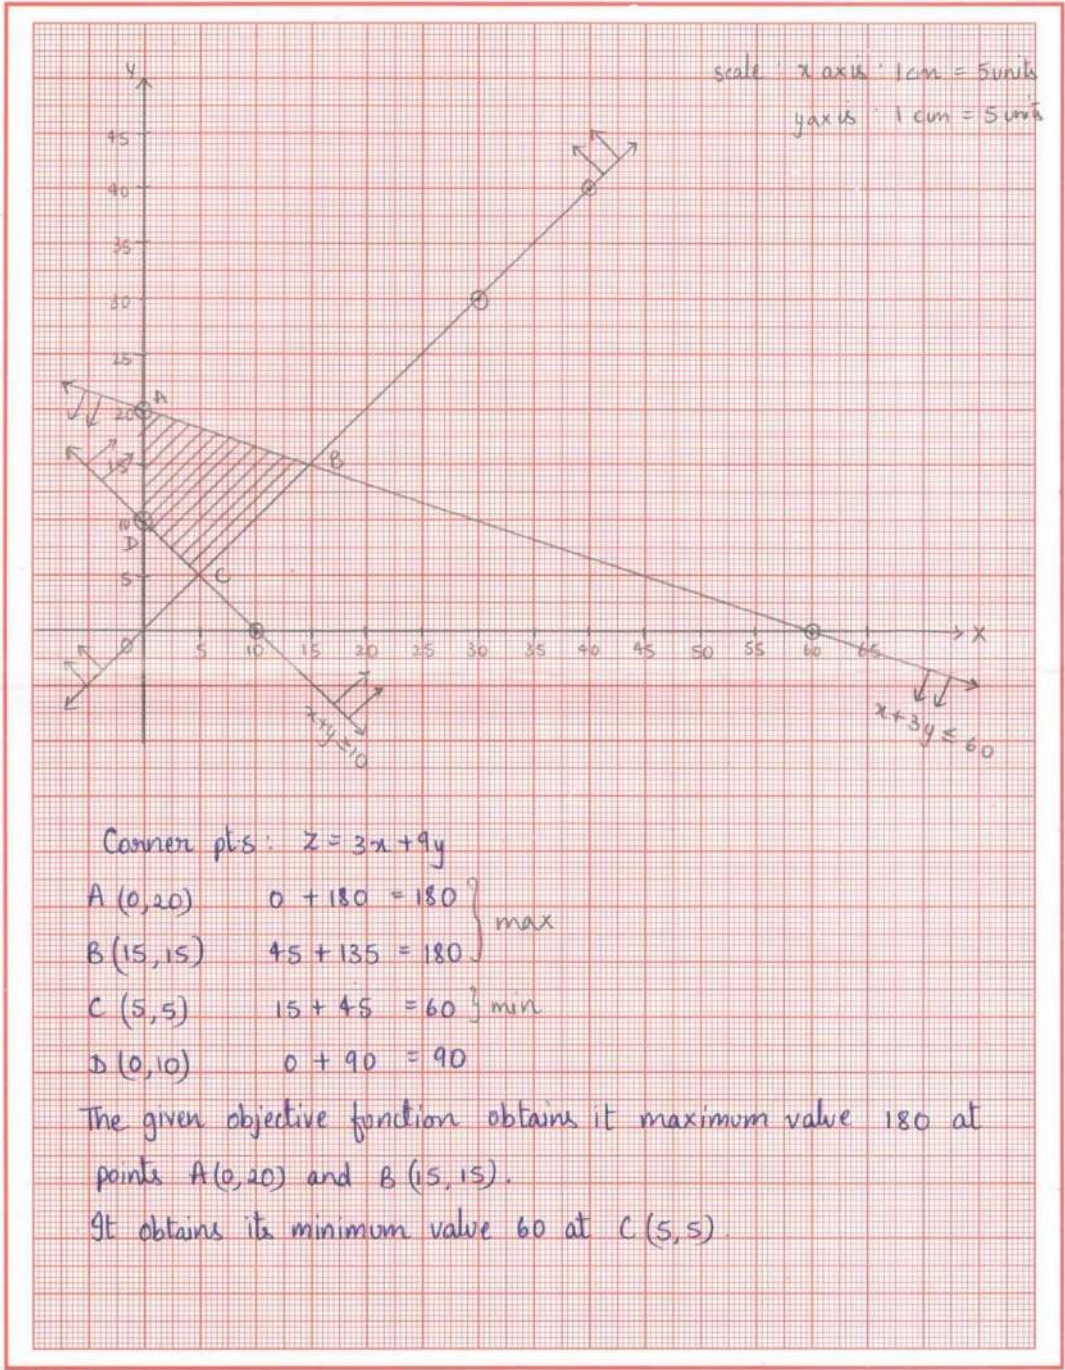 scale : x axis : 1cm = 5units
y axis : 1 cm = 5 units
Y
45
40
35
30
25
20 A
15
B
10
D
5 C
0 5 10 15 20 25 30 35 40 45 50 55 60 65 X
x+y≥10
x+3y≤60
Corner pts: Z = 3x+9y
A (0,20) 0 + 180 = 180
max
B (15,15) 45 + 135 = 180
C (5,5) 15 + 45 = 60 } min
D (0,10) 0 + 90 = 90
The given objective function obtains it maximum value 180 at
points A(0,20) and B (15,15).
It obtains its minimum value 60 at C (5,5).